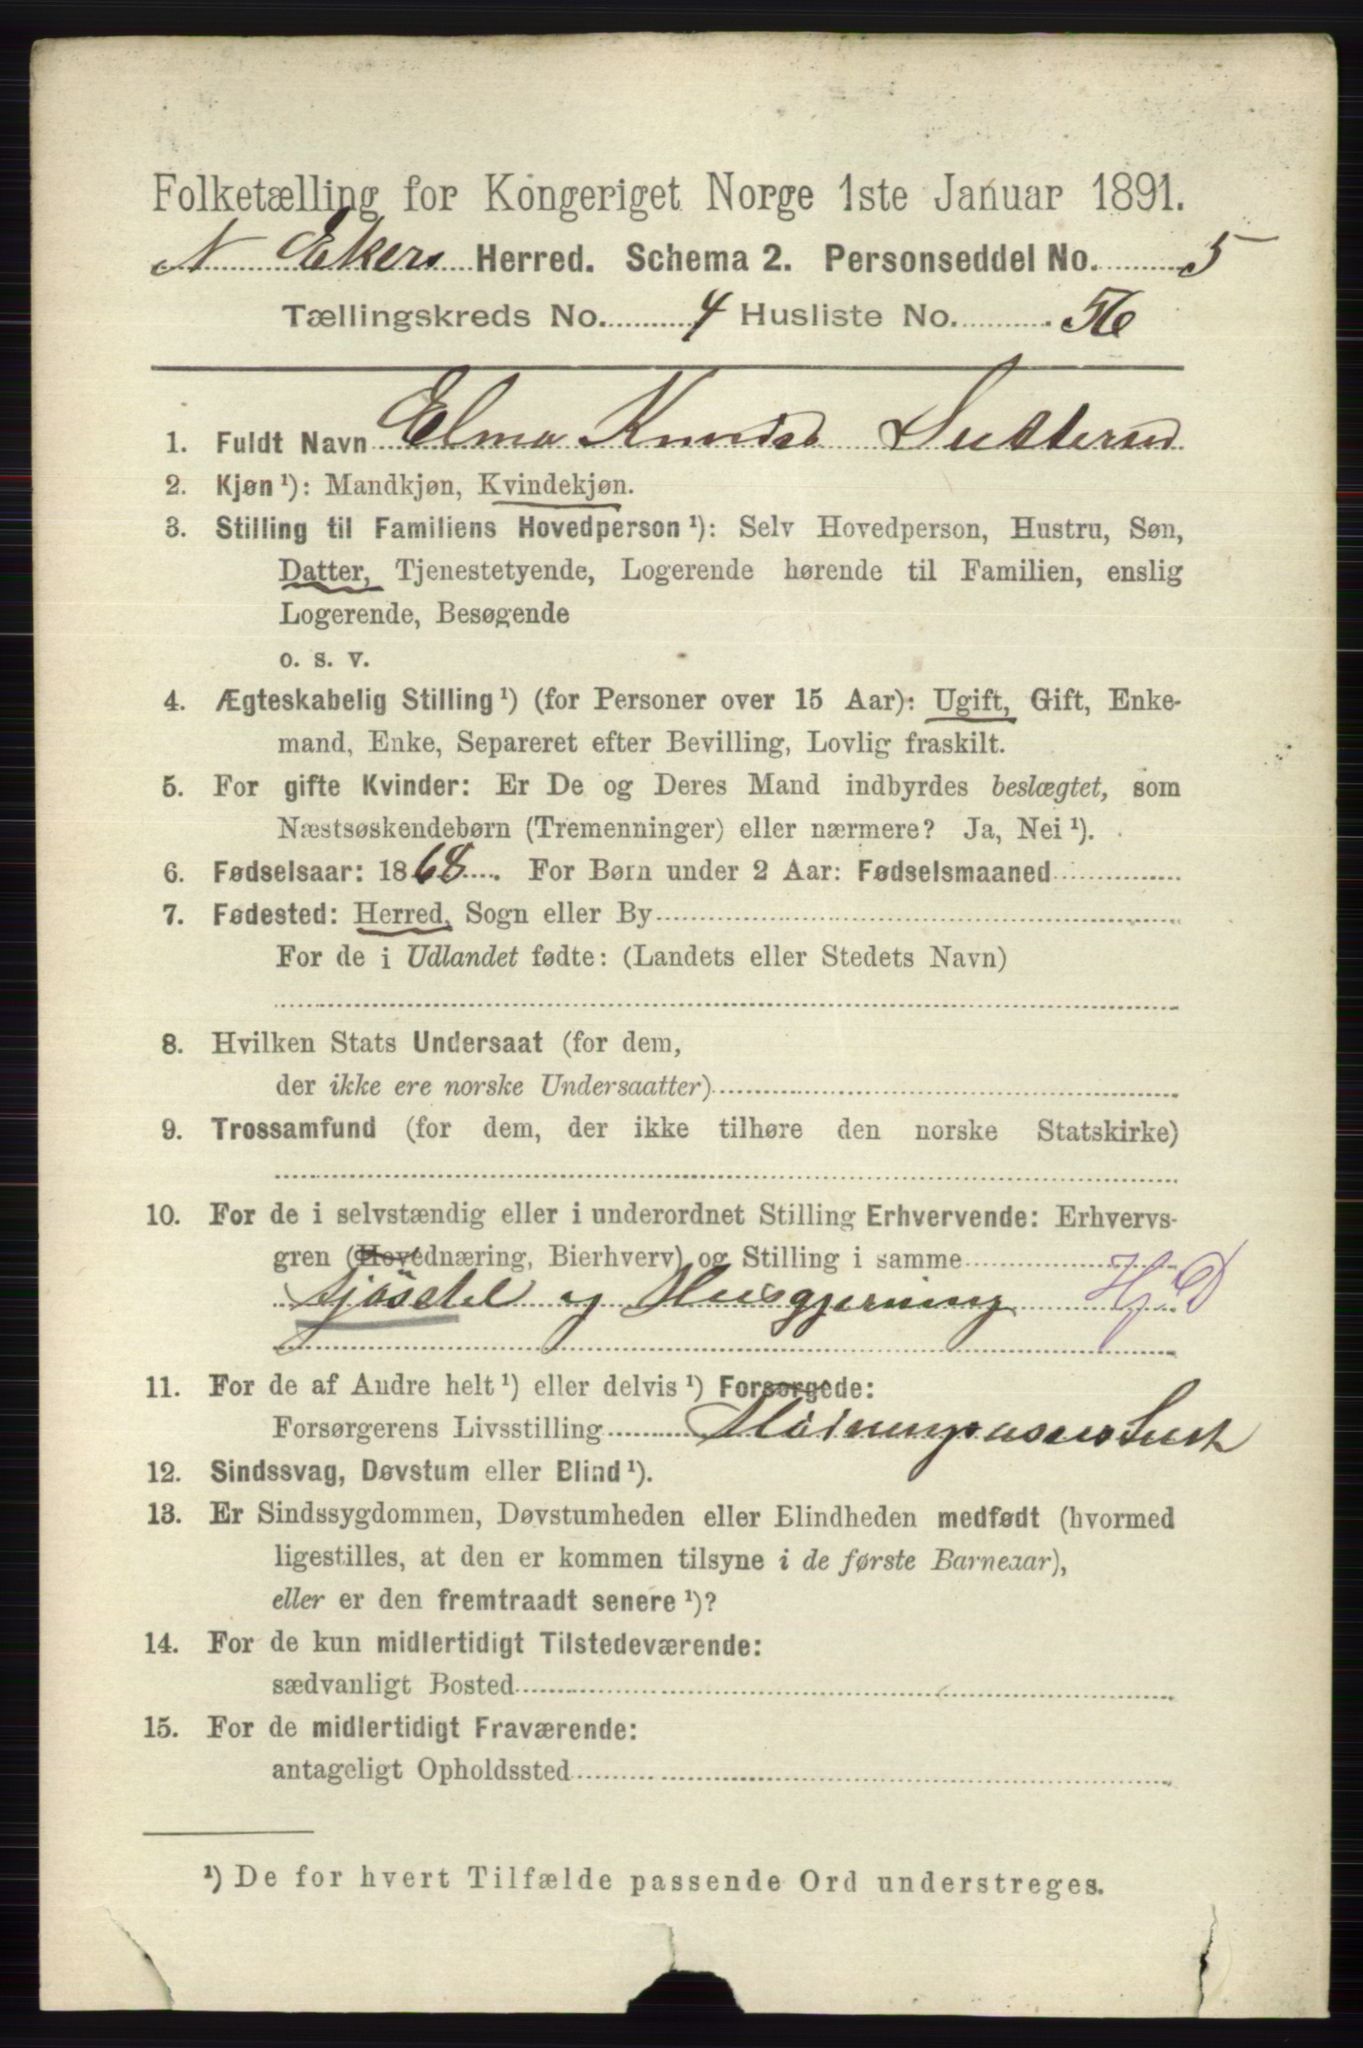 Folketælling for Kongeriget Norge 1ste Januar 1891.
N Ekers Herred. Schema 2. Personseddel No. 5
Tællingskreds No. 4 Husliste No. 56
1. Fuldt Navn Elma Knuds
2. Kjøn ¹): Mandkjøn, Kvindekjøn.
3. Stilling til Familiens Hovedperson ¹): Selv Hovedperson, Hustru, Søn,
Datter, Tjenestetyende, Logerende hørende til Familien, enslig
Logerende, Besøgende
o. s. v.
4. Ægteskabelig Stilling ¹) (for Personer over 15 Aar): Ugift, Gift, Enke-
mand, Enke, Separeret efter Bevilling, Lovlig fraskilt.
5. For gifte Kvinder: Er De og Deres Mand indbyrdes beslægtet, som
Næstsøskendebørn (Tremenninger) eller nærmere? Ja, Nei ¹).
6. Fødselsaar: 1868. For Børn under 2 Aar: Fødselsmaaned
7. Fødested: Herred, Sogn eller By
For de i Udlandet fødte: (Landets eller Stedets Navn)
8. Hvilken Stats Undersaat (for dem,
der ikke ere norske Undersaatter)
9. Trossamfund (for dem, der ikke tilhøre den norske Statskirke)
10. For de i selvstændig eller i underordnet Stilling Erhvervende: Erhvervs-
gren (Hovednæring, Bierhverv) og Stilling i samme
Fjøsstel og Husgjerning HjD
11. For de af Andre helt ¹) eller delvis ¹) Forsørgede:
Forsørgerens Livsstilling
12. Sindssvag, Døvstum eller Blind ¹).
13. Er Sindssygdommen, Døvstumheden eller Blindheden medfødt (hvormed
ligestilles, at den er kommen tilsyne i de første Barneaar),
eller er den fremtraadt senere ¹)?
14. For de kun midlertidigt Tilstedeværende:
sædvanligt Bosted
15. For de midlertidigt Fraværende:
antageligt Opholdssted
¹) De for hvert Tilfælde passende Ord understreges.